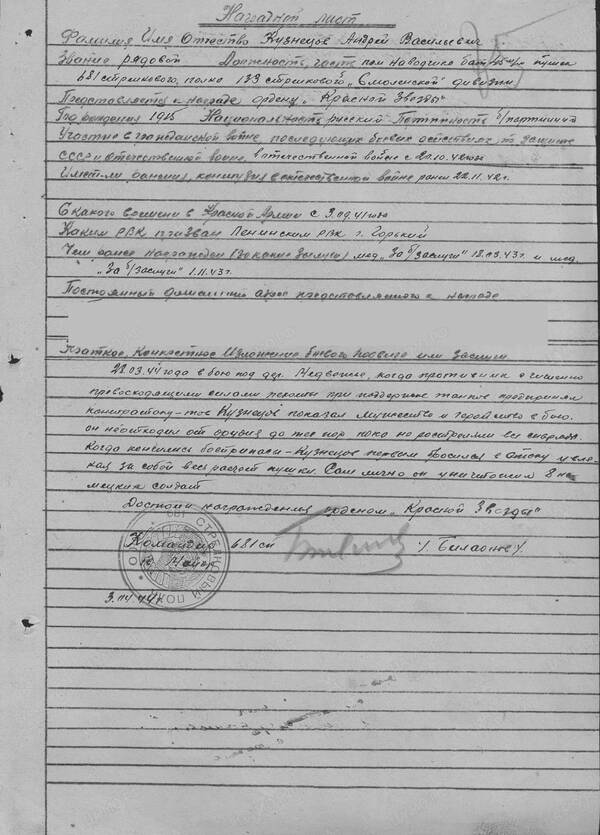 Наградной лист
Фамилия Имя Отчество Кузнецов Андрей Васильевич
Звание рядовой Должность, часть пом наводчика бат. 45 м/м пушек
681 стрелкового полка 133 стрелковой "Смоленской" дивизии
Представляется к награде ордену "Красной Звезды"
Год рождения 1915 Национальность русский Партийность б/партийный
Участие в гражданской войне, последующих боевых действиях по защите
СССР и отечественной войне, в отечественной войне с 20.10.42 года
Имеет ли ранения, контузия в отечественной войне ранен 22.11.42 г.
С какого времени в Красной Армии с 3.09.41 года
Каким РВК призван Ленинским РВК г. Горький
Чем ранее награжден (за какие заслуги) мед. "За б/заслуги" 18.03.43 г и мед.
"За б/заслуги" 1.11.43 г.
Постоянный домашний адрес представляемого к награде
Краткое, Конкретное Изложение боевого подвига или заслуги
22.03.44 года в бою под дер. Медвежье, когда противник численно
превосходящими силами пехоты при поддержке танков предпринял
контратаку - тов Кузнецов показал мужество и геройство в бою.
он не отходил от орудия до тех пор пока не расстреляли все снаряды.
Когда кончились боеприпасы - Кузнецов первым бросился в атаку увле-
кая за собой весь расчет пушки. Сам лично он уничтожил 8 не-
мецких солдат
Достоин награждения орденом "Красной Звезды"
Командир 681 сп
Майор
3.04.44 г.
СТРЕЛКОВЫЙ ПОЛК